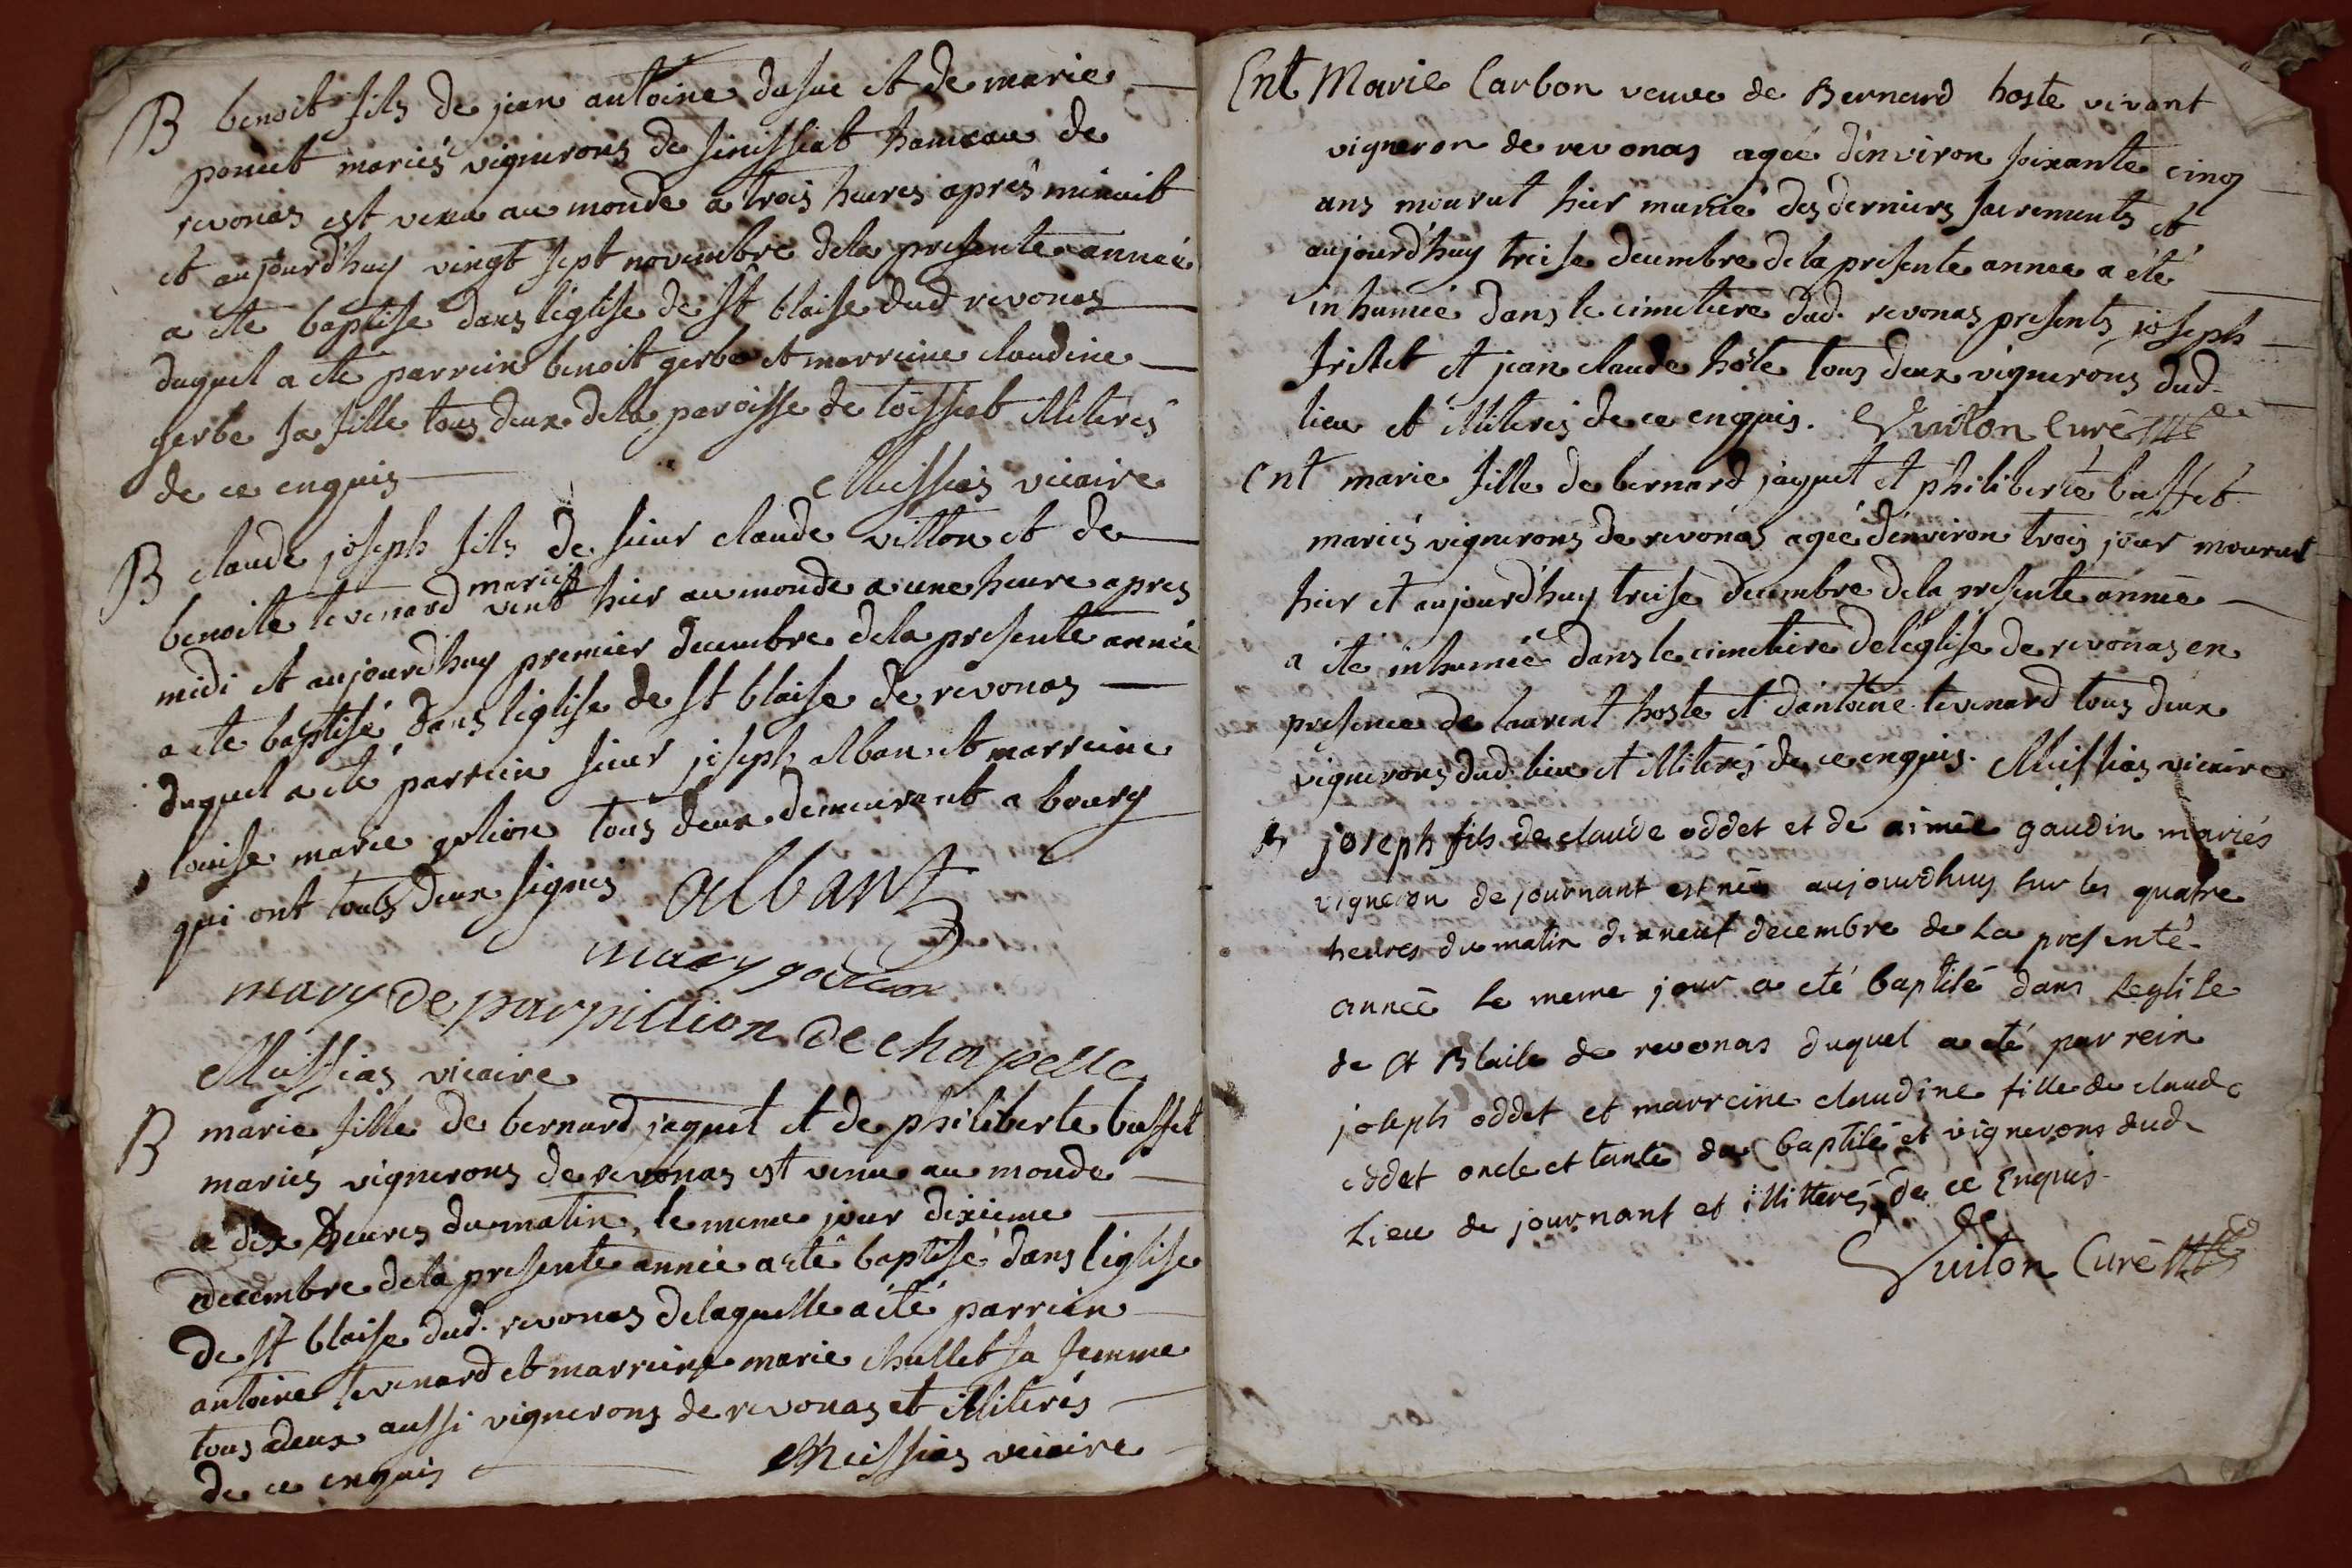 B benoit fils de jean antoine dusuc et de marie
poncet mariés vignerons de sénissiat hameau de
revonas est venu au monde a trois heures aprés minuit
et aujourd'huy vingt sept novembre dela presente année
a eté baptisé dans l'église de st blaise dud revonas
duquel a eté parrein benoit gerbe et marreine claudine
gerbe sa fille tous deux dela paroisse de toissiat illiterés
de ce enquis
Meissias vicaire
B claude joseph fils de sieur claude vitton et de
benoite tevenard mariés vint hier au monde a une heure apres
midi et aujourdhuy premier decembre dela presente année
a ete baptisé dans l'eglise de st blaise de revonas
duquel a eté parrein sieur joseph alban et marreine
louise marie tous deux demeurant a bourg
qui ont touts deux signés albant
mary
mary de parpillion de chapelle
Meissias vicaire
B marie fille de bernard jaquet et de philiberte buffet
mariés vignerons de revonas est venue au monde
a dix heures du matin, le meme jour dixieme
decembre dela presente année a eté baptisé dans l'eglise
de st blaise dud. revonas delaquelle a été parrein
antoine tevenard et marreine marie chullet sa femme
tous deux aussi vignerons de revonas et illiterés
de ce enquis
Meissias vicaire
Ent Marie Carbon veuve de Bernard hoste vivant
vigneron de revonas agée d'environ soixante cinq
ans mourut hier munie des derniers sacrements et
aujourd'huy treise decembre de la presente annee a été
inhumée dans le cimetiere dud. revonas presents joseph
fritet et jean claude hôte tous deux vignerons dud
lieu et illiterés de ce enquis. Vuiton Curé
Ent marie fille de bernard jaquet et philiberte buffet
mariés vignerons de revonas agée d'environ trois jour mourut
hier et aujourd'huy treise decembre dela presente année
a été inhumée dans le cimetiere de l'église de revonas en
presence de laurent hoste et d'antoine tevenard tous deux
vignerons dud. lieu et illiterés de ce enquis. Meissias vicaire
B joseph fils de claude oddet et de aimée gaudin mariés
vigneron de journant est née aujourdhuy sur les quatre
heures du matin dixneuf decembre de la presente
année le meme jour a eté baptisé dans l'eglise
de st Blaise de revonas duquel a eté parrein
joseph oddet et marreine claudine fille de claude
oddet oncle et tante du baptisé et vignerons dud
lieu de journant et illitterés de ce Enquis
Vuiton Curé